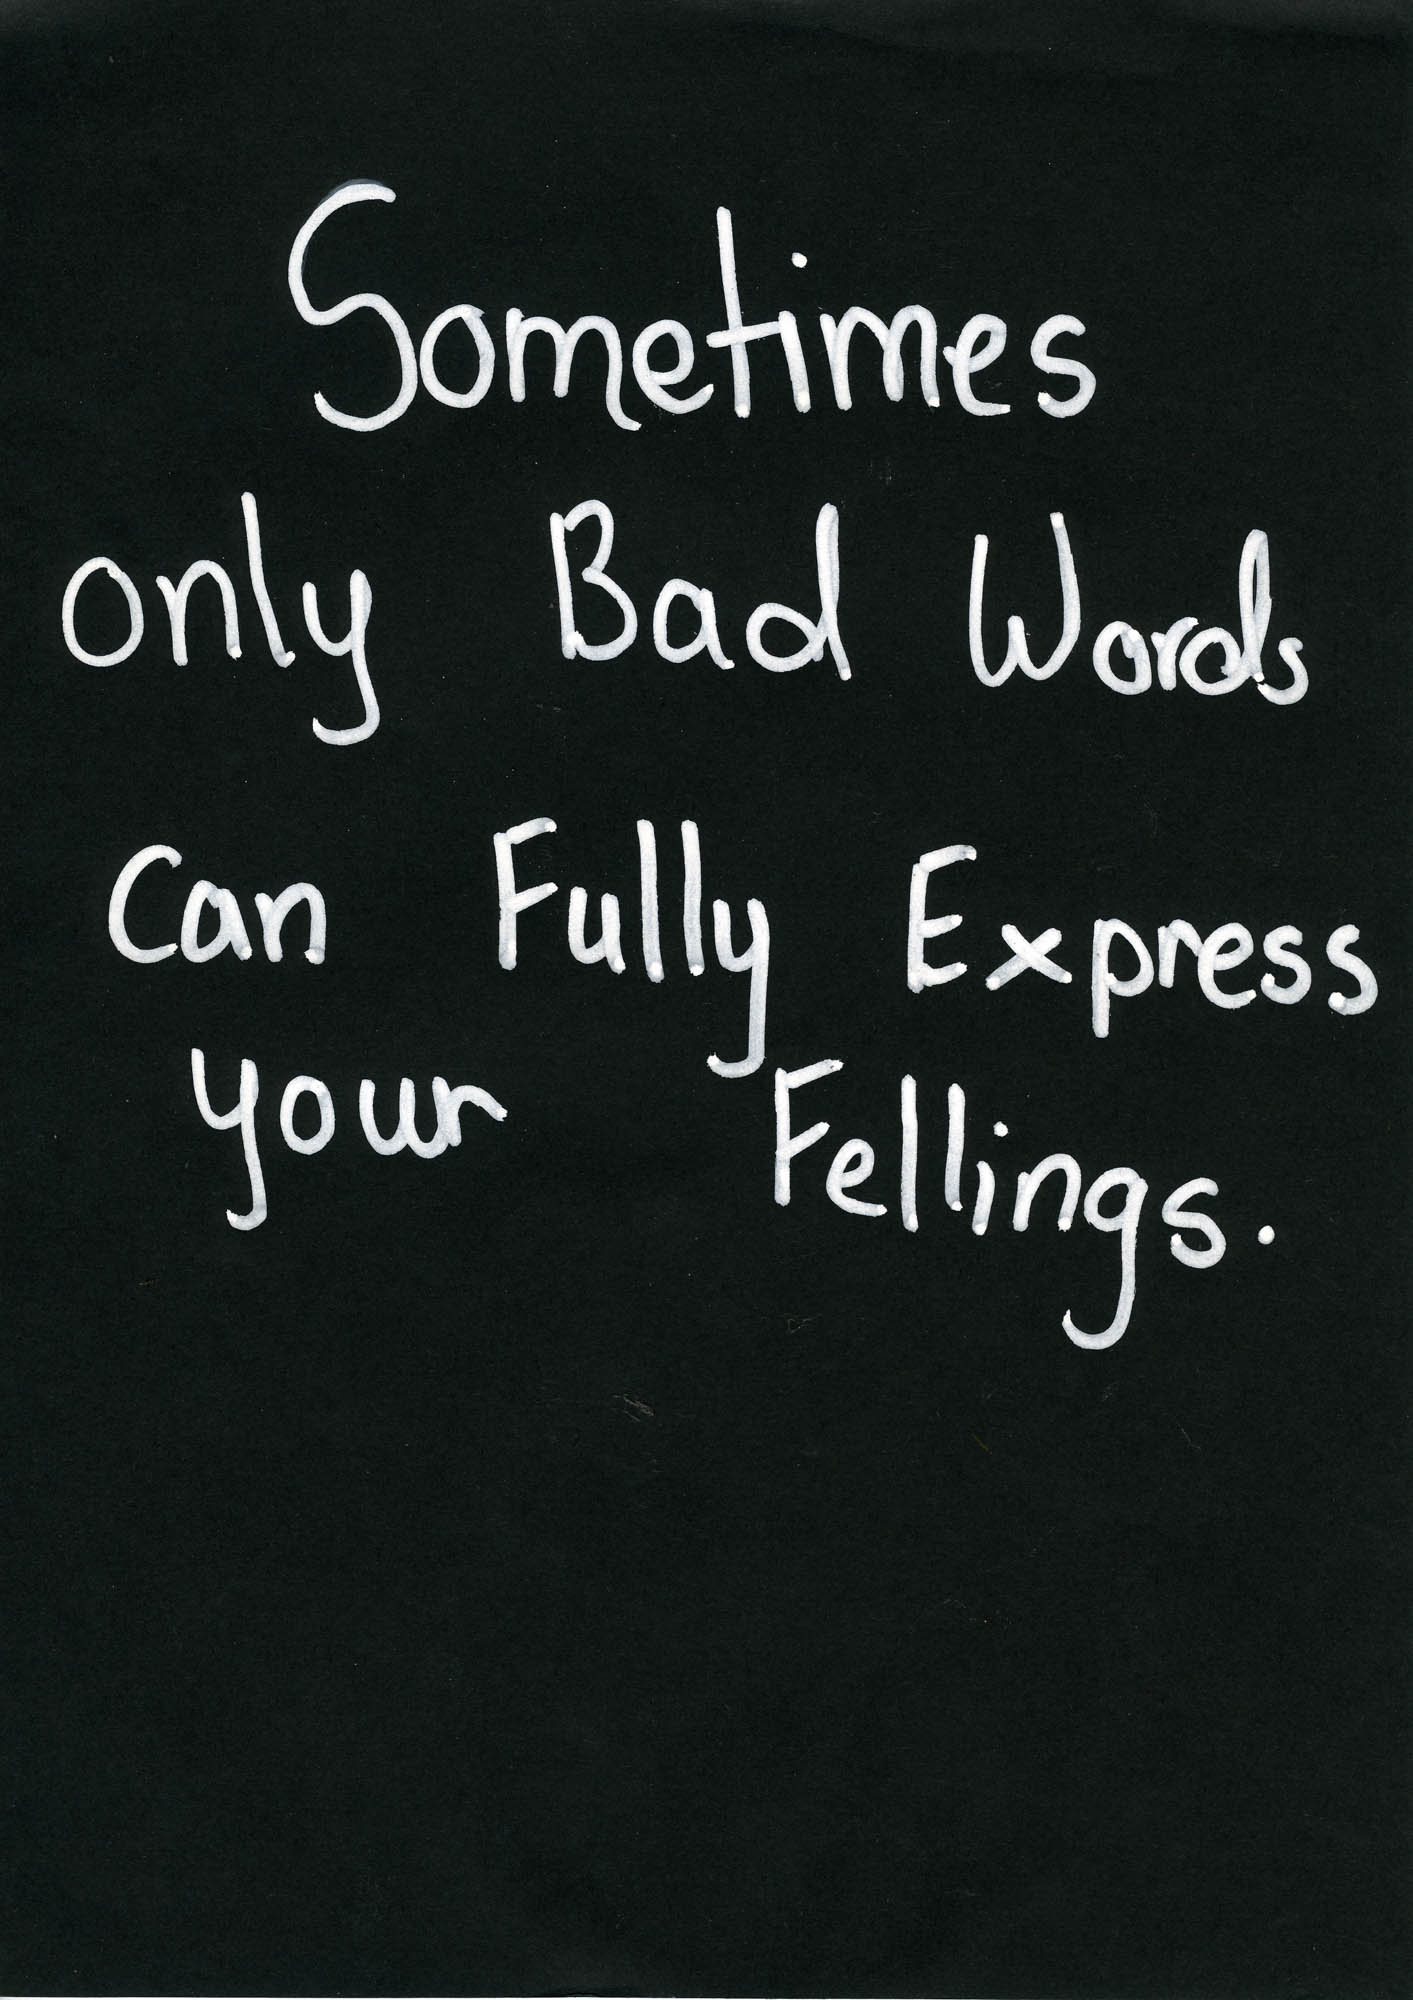 Sometimes
only Bad Words
Can Fully Express
your Fellings.